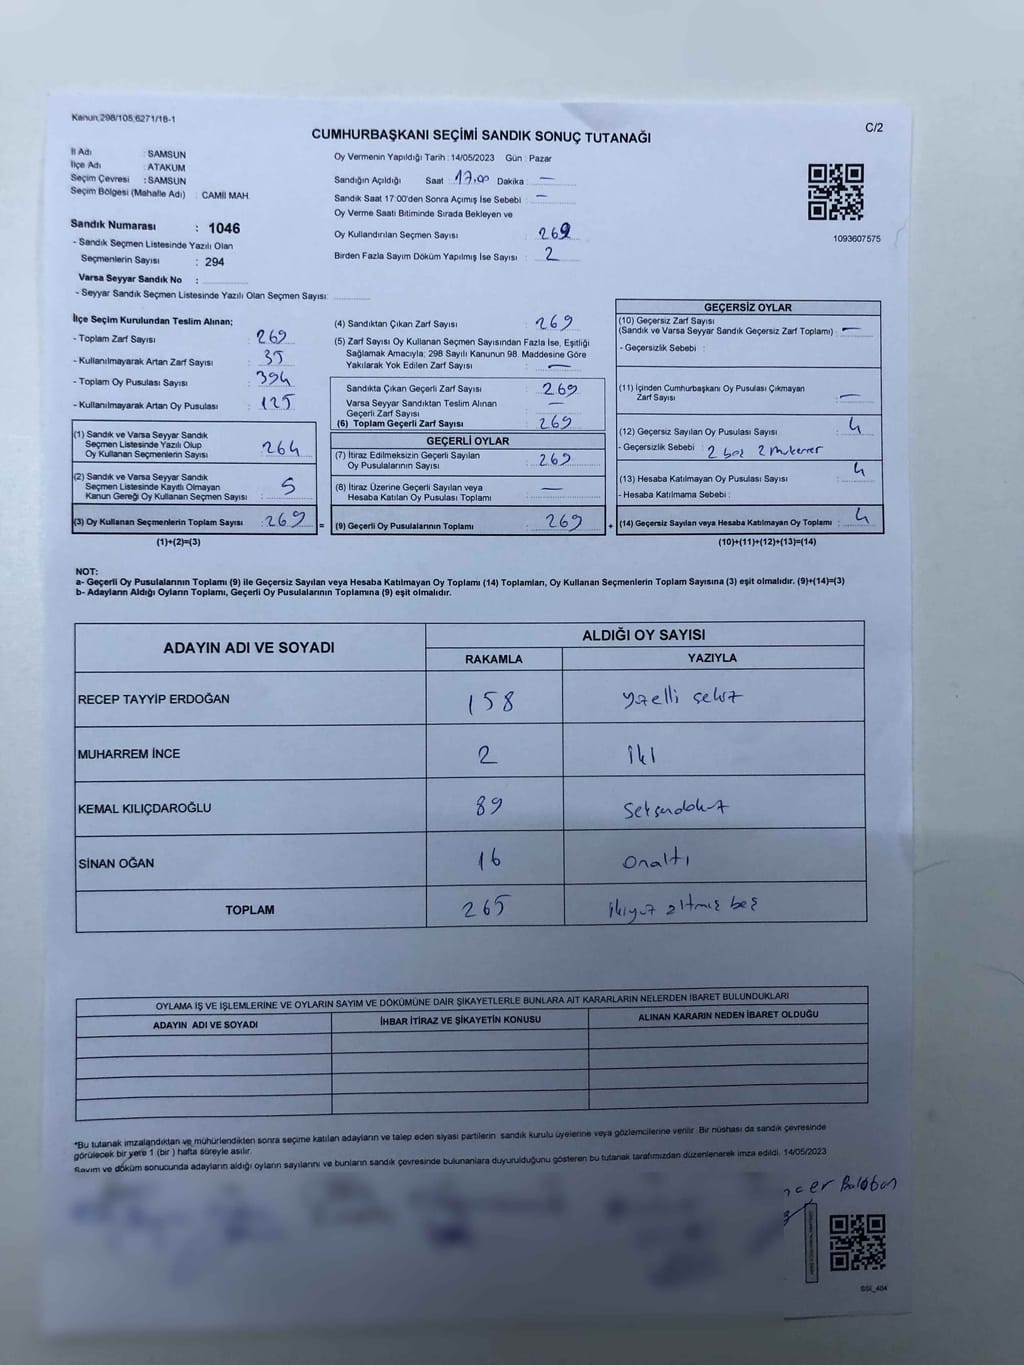 Kanun;298/105,6271/18-1
C/2
CUMHURBAŞKANI SEÇİMİ SANDIK SONUÇ TUTANAĞI
İl Adı : SAMSUN
İlçe Adı : ATAKUM
Seçim Çevresi : SAMSUN
Seçim Bölgesi (Mahalle Adı) : CAMİİ MAH.
Oy Vermenin Yapıldığı Tarih : 14/05/2023 Gün : Pazar
Sandığın Açıldığı Saat : 17.00 Dakika : —
Sandık Saat 17:00'den Sonra Açımış İse Sebebi : —
Oy Verme Saati Bitiminde Sırada Bekleyen ve
Oy Kullandırılan Seçmen Sayısı : 269
Birden Fazla Sayım Döküm Yapılmış İse Sayısı : 2
1093607575
Sandık Numarası : 1046
- Sandık Seçmen Listesinde Yazılı Olan
Seçmenlerin Sayısı : 294
Varsa Seyyar Sandık No :
- Seyyar Sandık Seçmen Listesinde Yazılı Olan Seçmen Sayısı:
İlçe Seçim Kurulundan Teslim Alınan;
- Toplam Zarf Sayısı : 269
- Kullanılmayarak Artan Zarf Sayısı : 35
- Toplam Oy Pusulası Sayısı : 394
- Kullanılmayarak Artan Oy Pusulası : 125
(1) Sandık ve Varsa Seyyar Sandık
Seçmen Listesinde Yazılı Olup
Oy Kullanan Seçmenlerin Sayısı : 264
(2) Sandık ve Varsa Seyyar Sandık
Seçmen Listesinde Kayıtlı Olmayan
Kanun Gereği Oy Kullanan Seçmen Sayısı : 5
(3) Oy Kullanan Seçmenlerin Toplam Sayısı : 269
(1)+(2)=(3)
(4) Sandıktan Çıkan Zarf Sayısı : 269
(5) Zarf Sayısı Oy Kullanan Seçmen Sayısından Fazla İse, Eşitliği
Sağlamak Amacıyla; 298 Sayılı Kanunun 98. Maddesine Göre
Yakılarak Yok Edilen Zarf Sayısı : —
Sandıkta Çıkan Geçerli Zarf Sayısı : 269
Varsa Seyyar Sandıktan Teslim Alınan : —
Geçerli Zarf Sayısı
(6) Toplam Geçerli Zarf Sayısı : 269
GEÇERLİ OYLAR
(7) İtiraz Edilmeksizin Geçerli Sayılan
Oy Pusulalarının Sayısı : 269
(8) İtiraz Üzerine Geçerli Sayılan veya
Hesaba Katılan Oy Pusulası Toplamı : —
= (9) Geçerli Oy Pusulalarının Toplamı : 269
GEÇERSİZ OYLAR
(10) Geçersiz Zarf Sayısı
(Sandık ve Varsa Seyyar Sandık Geçersiz Zarf Toplamı) : —
- Geçersizlik Sebebi :
(11) İçinden Cumhurbaşkanı Oy Pusulası Çıkmayan
Zarf Sayısı : —
(12) Geçersiz Sayılan Oy Pusulası Sayısı : 4
- Geçersizlik Sebebi : 2 boş 2 mukerrer
(13) Hesaba Katılmayan Oy Pusulası Sayısı : 4
- Hesaba Katılmama Sebebi :
+ (14) Geçersiz Sayılan veya Hesaba Katılmayan Oy Toplamı : 4
(10)+(11)+(12)+(13)=(14)
NOT:
a- Geçerli Oy Pusulalarının Toplamı (9) ile Geçersiz Sayılan veya Hesaba Katılmayan Oy Toplamı (14) Toplamları, Oy Kullanan Seçmenlerin Toplam Sayısına (3) eşit olmalıdır. (9)+(14)=(3)
b- Adayların Aldığı Oyların Toplamı, Geçerli Oy Pusulalarının Toplamına (9) eşit olmalıdır.
ADAYIN ADI VE SOYADI
ALDIĞI OY SAYISI
RAKAMLA YAZIYLA
RECEP TAYYİP ERDOĞAN 158 yzelli sekiz
MUHARREM İNCE 2 iki
KEMAL KILIÇDAROĞLU 89 Seksendokuz
SİNAN OĞAN 16 Onaltı
TOPLAM 265 ikiyuz altmış beş
OYLAMA İŞ VE İŞLEMLERİNE VE OYLARIN SAYIM VE DÖKÜMÜNE DAİR ŞİKAYETLERLE BUNLARA AİT KARARLARIN NELERDEN İBARET BULUNDUKLARI
ADAYIN ADI VE SOYADI İHBAR İTİRAZ VE ŞİKAYETİN KONUSU ALINAN KARARIN NEDEN İBARET OLDUĞU
*Bu tutanak imzalandıktan ve mühürlendikten sonra seçime katılan adayların ve talep eden siyasi partilerin sandık kurulu üyelerine veya gözlemcilerine verilir. Bir nüshası da sandık çevresinde
görülecek bir yere 1 (bir ) hafta süreyle asılır.
Sayım ve döküm sonucunda adayların aldığı oyların sayılarını ve bunların sandık çevresinde bulunanlara duyurulduğunu gösteren bu tutanak tarafımızdan düzenlenerek imza edildi. 14/05/2023
Balaban